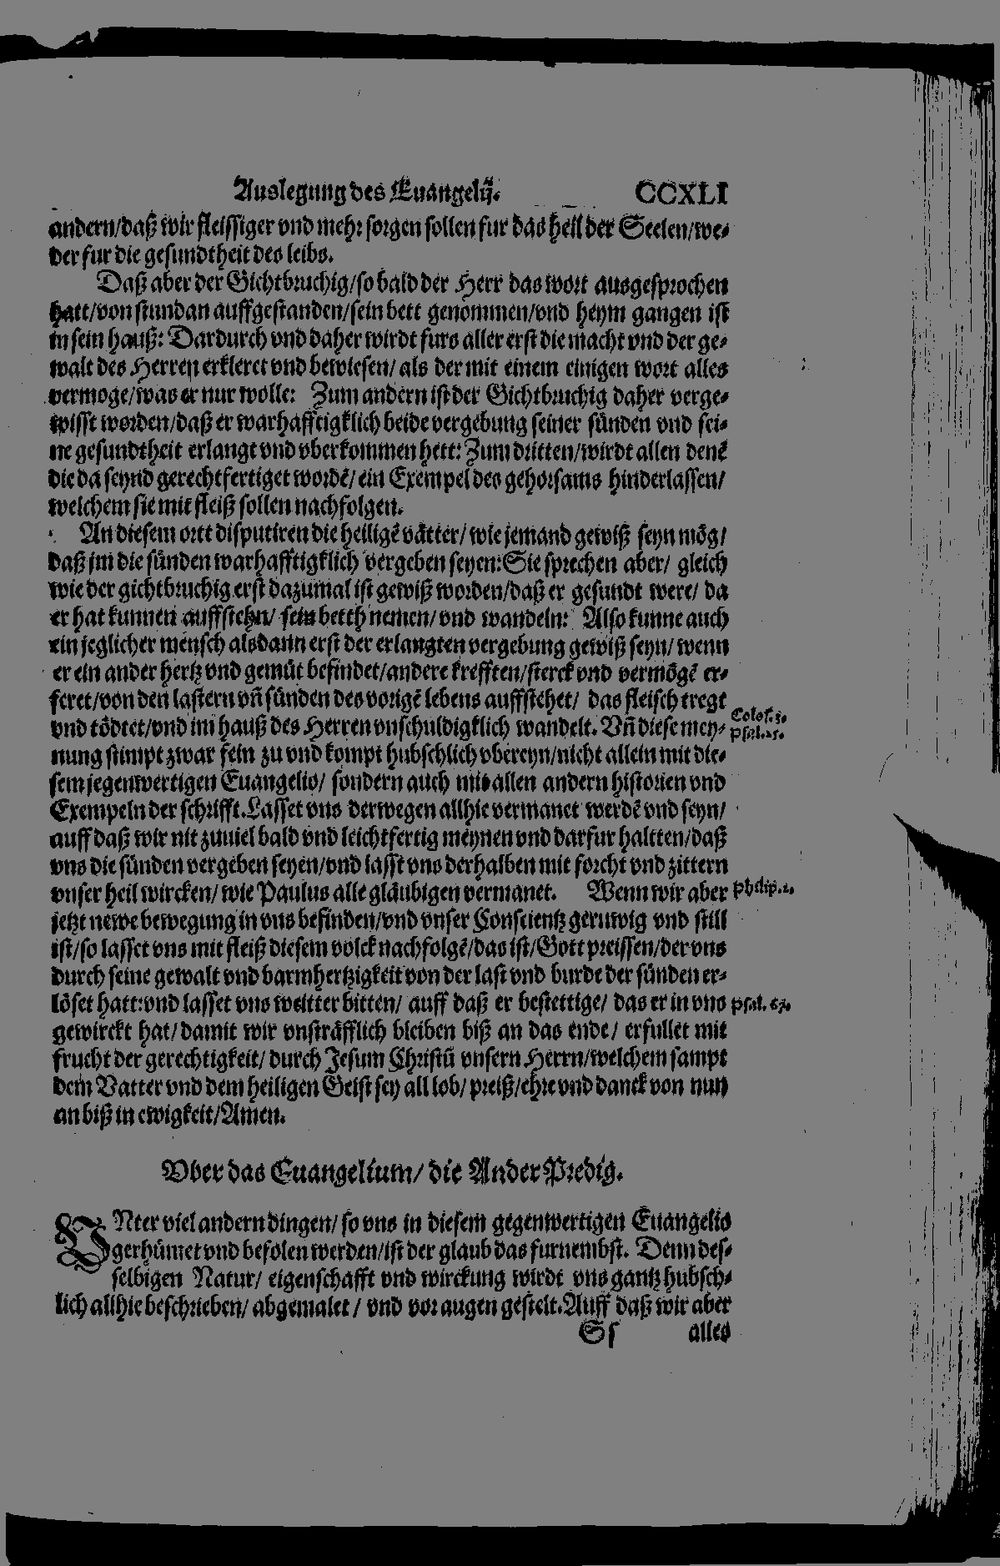 Auslegung des Euangelij. CCXLI
andern/daß wir fleissiger vnd mehr sorgen sollen fur das heil der Seelen/we-
der fur die gesundtheit des leibs.
Daß aber der Gichtbruchig/so bald der Herr das wort ausgesprochen
hatt/von stundan auffgestanden/sein bett genommen/vnd heym gangen ist
in sein hauß: Dardurch vnd daher wirdt furs aller erst die macht vnd der ge-
walt des Herren erkleret vnd bewiesen/ als der mit einem einigen wort alles
vermoge/was er nur wolle: Zum andern ist der Gichtbruchig daher verge-
wisst worden/daß er warhafftigklich beide vergebung seiner sünden vnd sei-
ne gesundtheit erlangt vnd vberkommen hett: Zum dritten/wirdt allen denē
die da seynd gerechtfertiget wordē/ein Exempel des gehorsams hinderlassen/
welchem sie mit fleiß sollen nachfolgen.
An diesem ortt disputiren die heiligē vätter/ wie jemand gewiß seyn mög/
daß jm die sünden warhafftigklich vergeben seyen: Sie sprechen aber/ gleich
wie der gichtbruchig erst dazumal ist gewiß worden/daß er gesundt were/ da
er hat kunnen auffstehn/ sein betth nemen/ vnd wandeln: Also kunne auch
ein jeglicher mensch alsdann erst der erlangten vergebung gewiß seyn/ wenn
er ein ander hertz vnd gemüt befindet/andere krefften/sterck vnd vermögē er-
feret/von den lastern vn̄ sünden des vorigē lebens auffstehet/ das fleisch tregt
vnd tödtet/vnd im hauß des Herren vnschuldigklich wandelt. Vn̄ diese mey-
Colos. 3.
Psal.
nung stimpt zwar fein zu vnd kompt hubschlich vbereyn/nicht allein mit die-
sem jegenwertigen Euangelio/ sondern auch mit allen andern historien vnd
Exempeln der schrifft. Lasset vns derwegen allhie vermanet werdē vnd seyn/
auff daß wir nit zuuiel bald vnd leichtfertig meynen vnd darfur haltten/daß
vns die sünden vergeben seyen/vnd lasst vns derhalben mit forcht vnd zittern
vnser heil wircken/ wie Paulus alle gläubigen vermanet. Wenn wir aber
Philip. 2.
jetzt newe bewegung in vns befinden/vnd vnser Conscientz geruwig vnd still
ist/so lasset vns mit fleiß diesem volck nachfolgē/das ist/Gott preissen/der vns
durch seine gewalt vnd barmhertzigkeit von der last vnd burde der sünden er-
löset hatt: vnd lasset vns weitter bitten/ auff daß er bestettige/ das er in vns
Psal.
gewirckt hat/ damit wir vnsträfflich bleiben biß an das ende/ erfullet mit
frucht der gerechtigkeit/ durch Jesum Christū vnsern Herrn/welchem sampt
dem Vatter vnd dem heiligen Geist sey all lob/ preiß/ehre vnd danck von nun
an biß in ewigkeit/Amen.
Vber das Euangelium/ die Ander Predig.
VNter viel andern dingen/ so vns in diesem gegenwertigen Euangelio
gerhümet vnd befolen werden/ist der glaub das furnembst. Denn des-
selbigen Natur/ eigenschafft vnd wirckung wirdt vns gantz hubsch-
lich allhie beschrieben/ abgemalet/ vnd vor augen gestelt. Auff daß wir aber
Ss alles